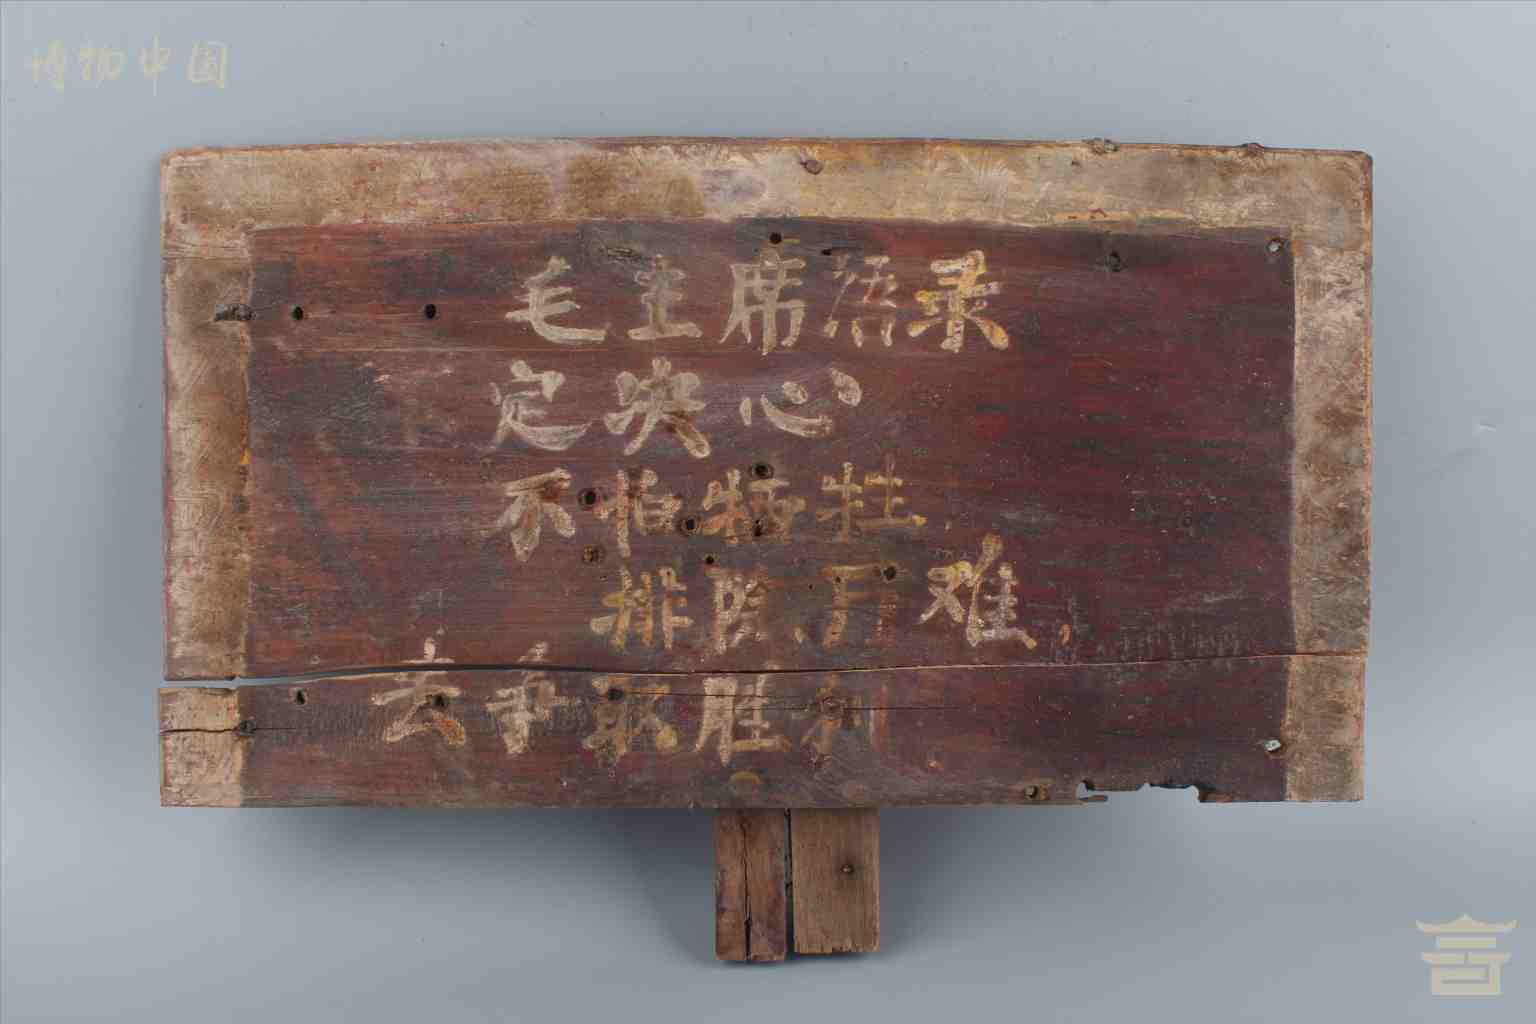 博物中国
毛主席语录
定决心
不怕牺牲
排除万难,
去争取胜利